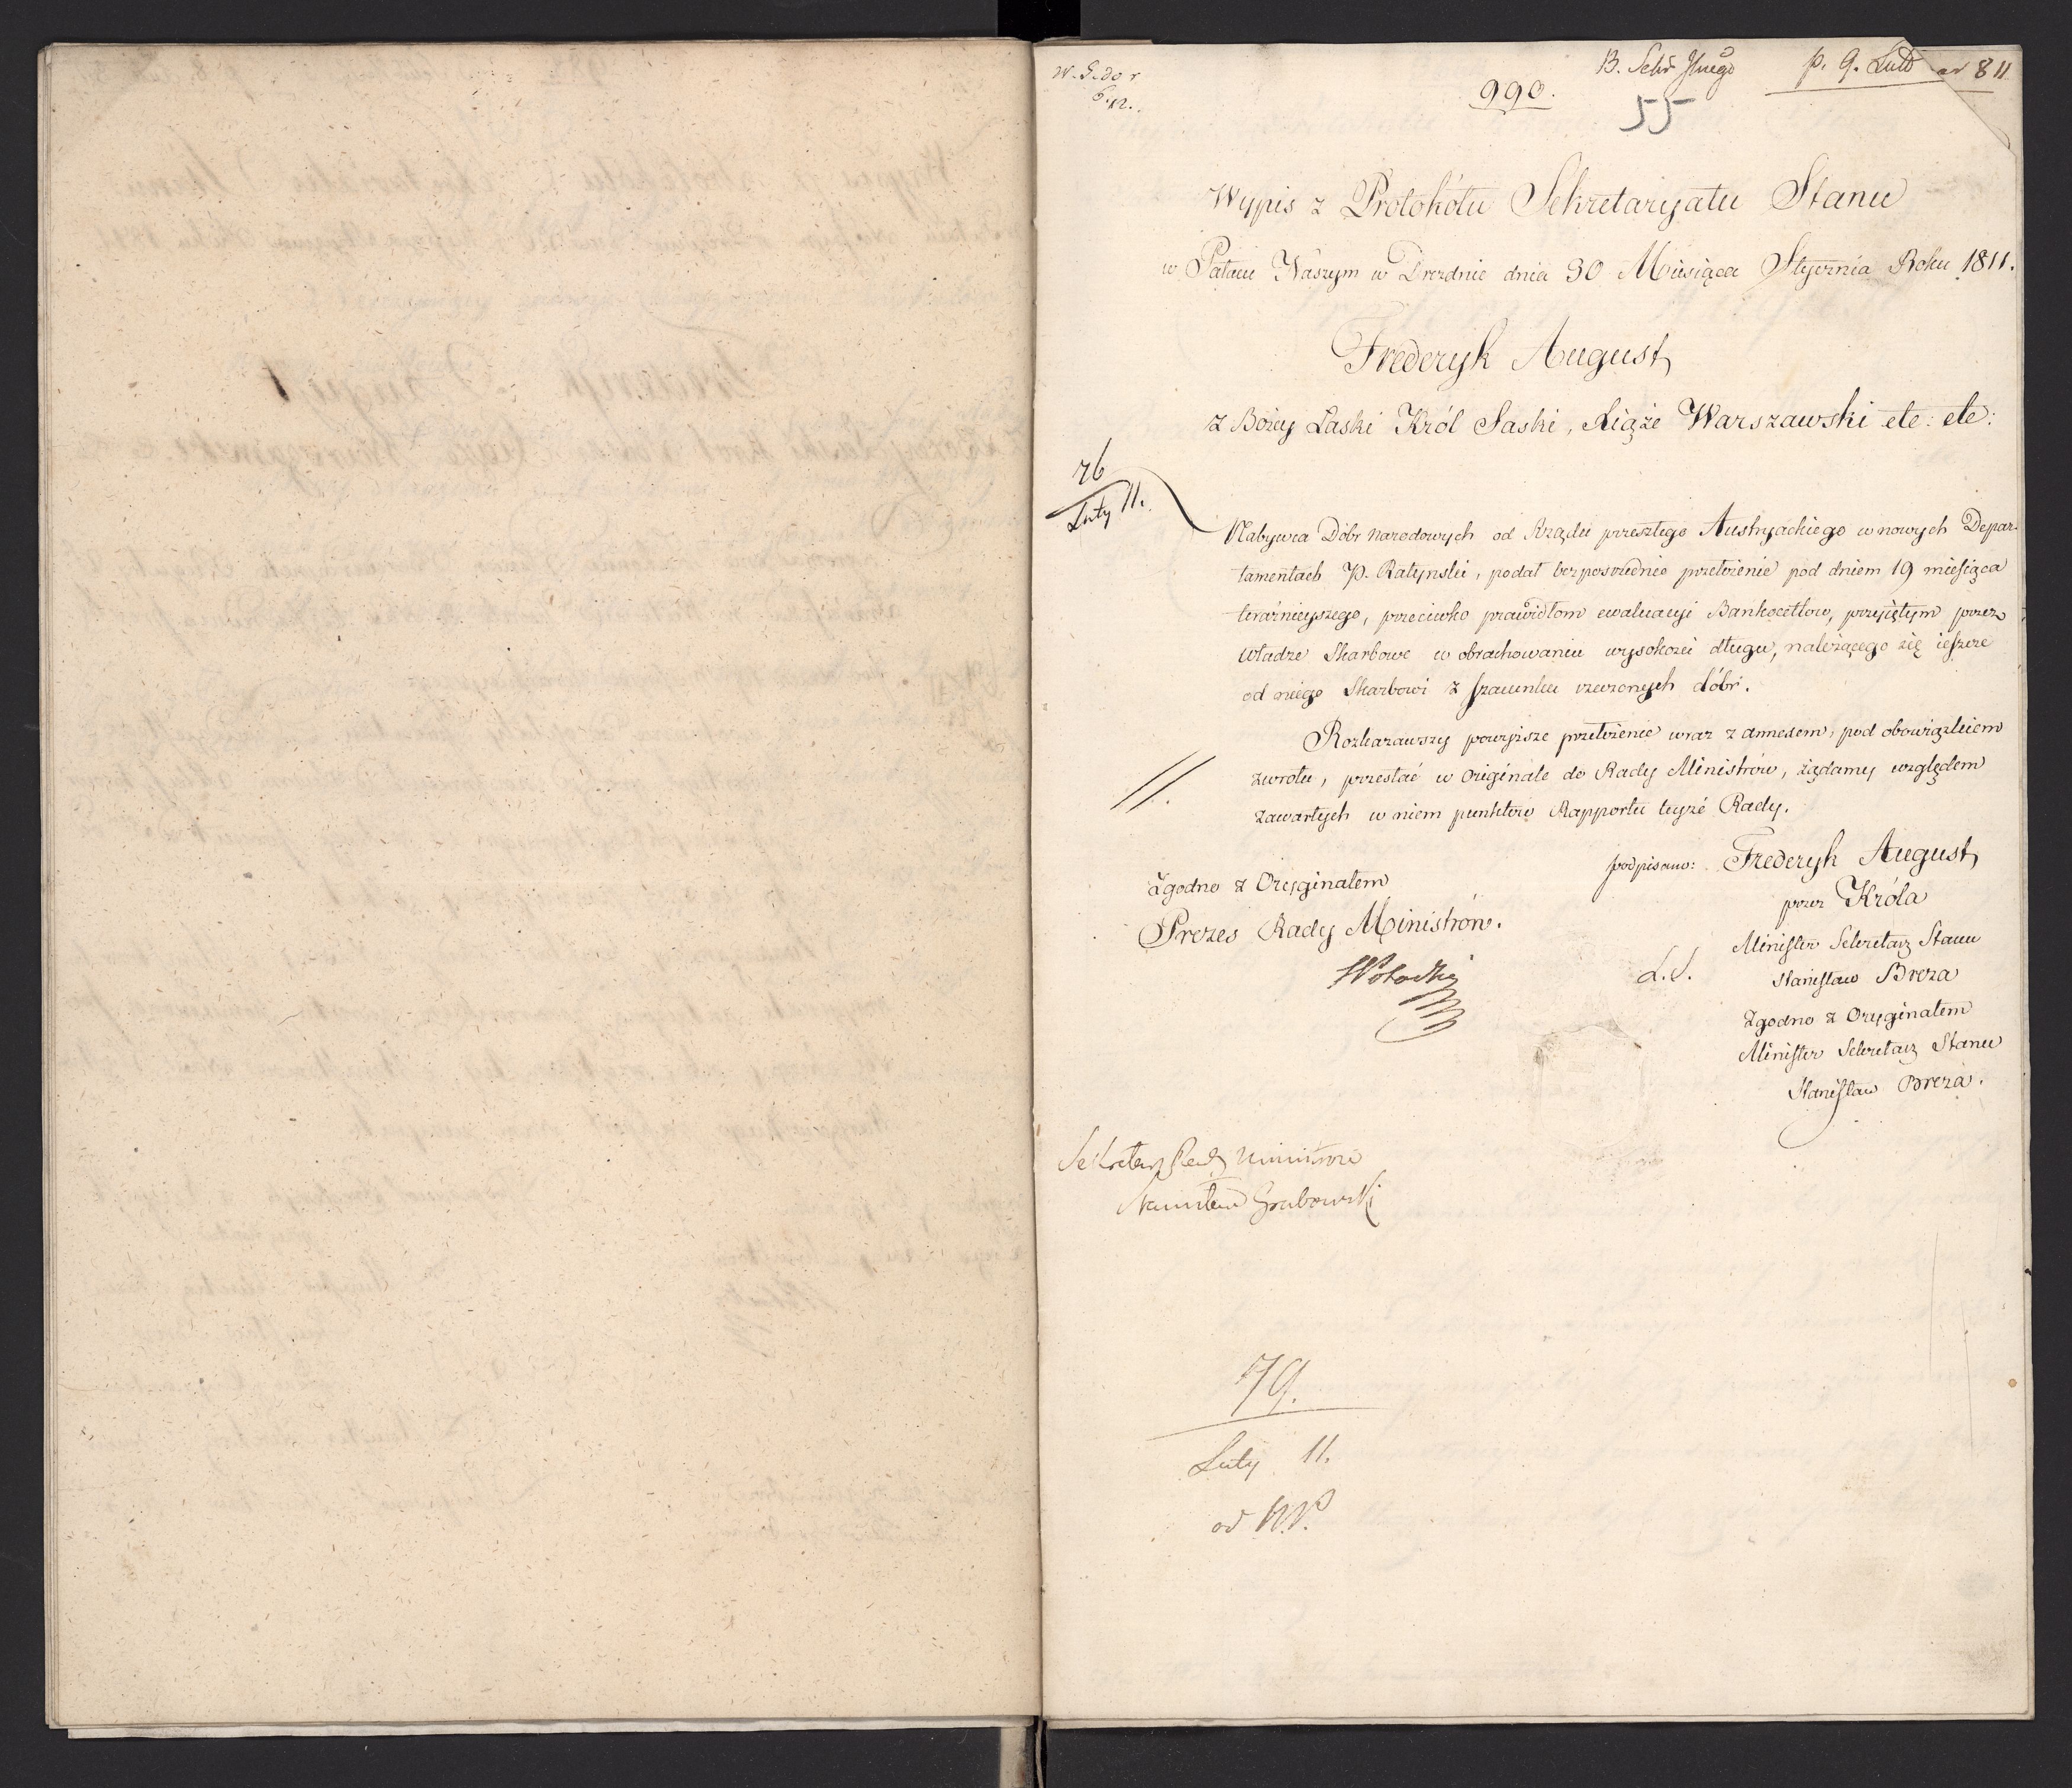 990.
55
Wypis z Protokółu Sekretaryatu Stanu
w Pałacu Naszym w Dreznie dnia 30 Miesiąca Stycznia Roku 1811.
Frederyk August
z Bożey Łaski Król Saski, Xiąże Warszawski etc: etc:
76
Luty 11.
Nabywca Dóbr Narodowych od Rządu przeszłego Austryackiego w nowych Depar-
tamentach P. Ratynski, podał bezposrzednio przełożenie pod dniem 19 miesiąca
teraźnieyszego, przeciwko prawidłom ewaluacyi Bankocetlow, przyiętym przez
Władze Skarbowe w obrachowaniu wysokości długu, należącego się ieszcze
od niego Skarbowi z szacunku rzeczonych dóbr.
Rozkazawszy powyższe przełożenie wraz z annexem, pod obowiązkiem
zwrotu, przesłać w Originale do Rady Ministrów, żądamy względem
zawartych w niem punktów Rapportu teyże Rady.
podpisano: Frederyk August
przez Króla
Minister Sekretarz Stanu
L.S. Stanisław Breza
Zgodno z Oryginałem
Minister Sekretarz Stanu
Stanisław Breza.
Zgodno z Oryginałem
Prezes Rady Ministrów.
Sekretarz Rady Ministrów
Stanisław Grabowski
79.
Luty 11.
od